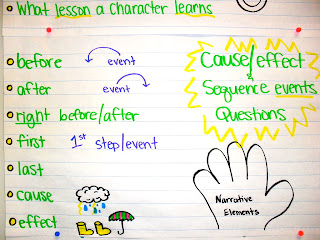 What lesson a character learns
before event
after event
right before/after
first 1st step/event
last
cause
effect
Cause/effect
Sequence events
Questions
Narrative
Elements